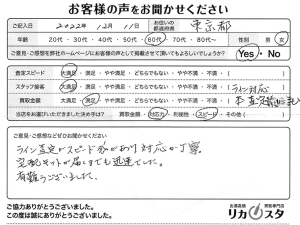 お客様の声をお聞かせください
ご記入日 2022年 12月 11日 お住いの都道府県 東京都
年代 20代・30代・40代・50代・60代・70代・80代〜 性別 男・女
ご意見・ご感想を弊社ホームページにお客様の声として掲載させて頂いてもよろしいでしょうか? Yes・No
査定スピード 大満足・満足・やや満足・どちらでもない・やや不満・不満・( )
スタッフ接客 大満足・満足・やや満足・どちらでもない・やや不満・不満・( ライン対応 )
買取金額 大満足・満足・やや満足・どちらでもない・やや不満・不満・( 本査定前に記 )
当店をお選びいただきました決め手は? 買取金額・対応力・利便性・スピード・その他( )
ご意見・ご感想などぜひお聞かせください
ライン査定がスピード感があり対応が丁寧
宅配キットが届くまでも迅速でした。
有難うございました。
ご協力ありがとうございました。
この度は誠にありがとうございました。
お酒高価 買取専門店
リカスタ